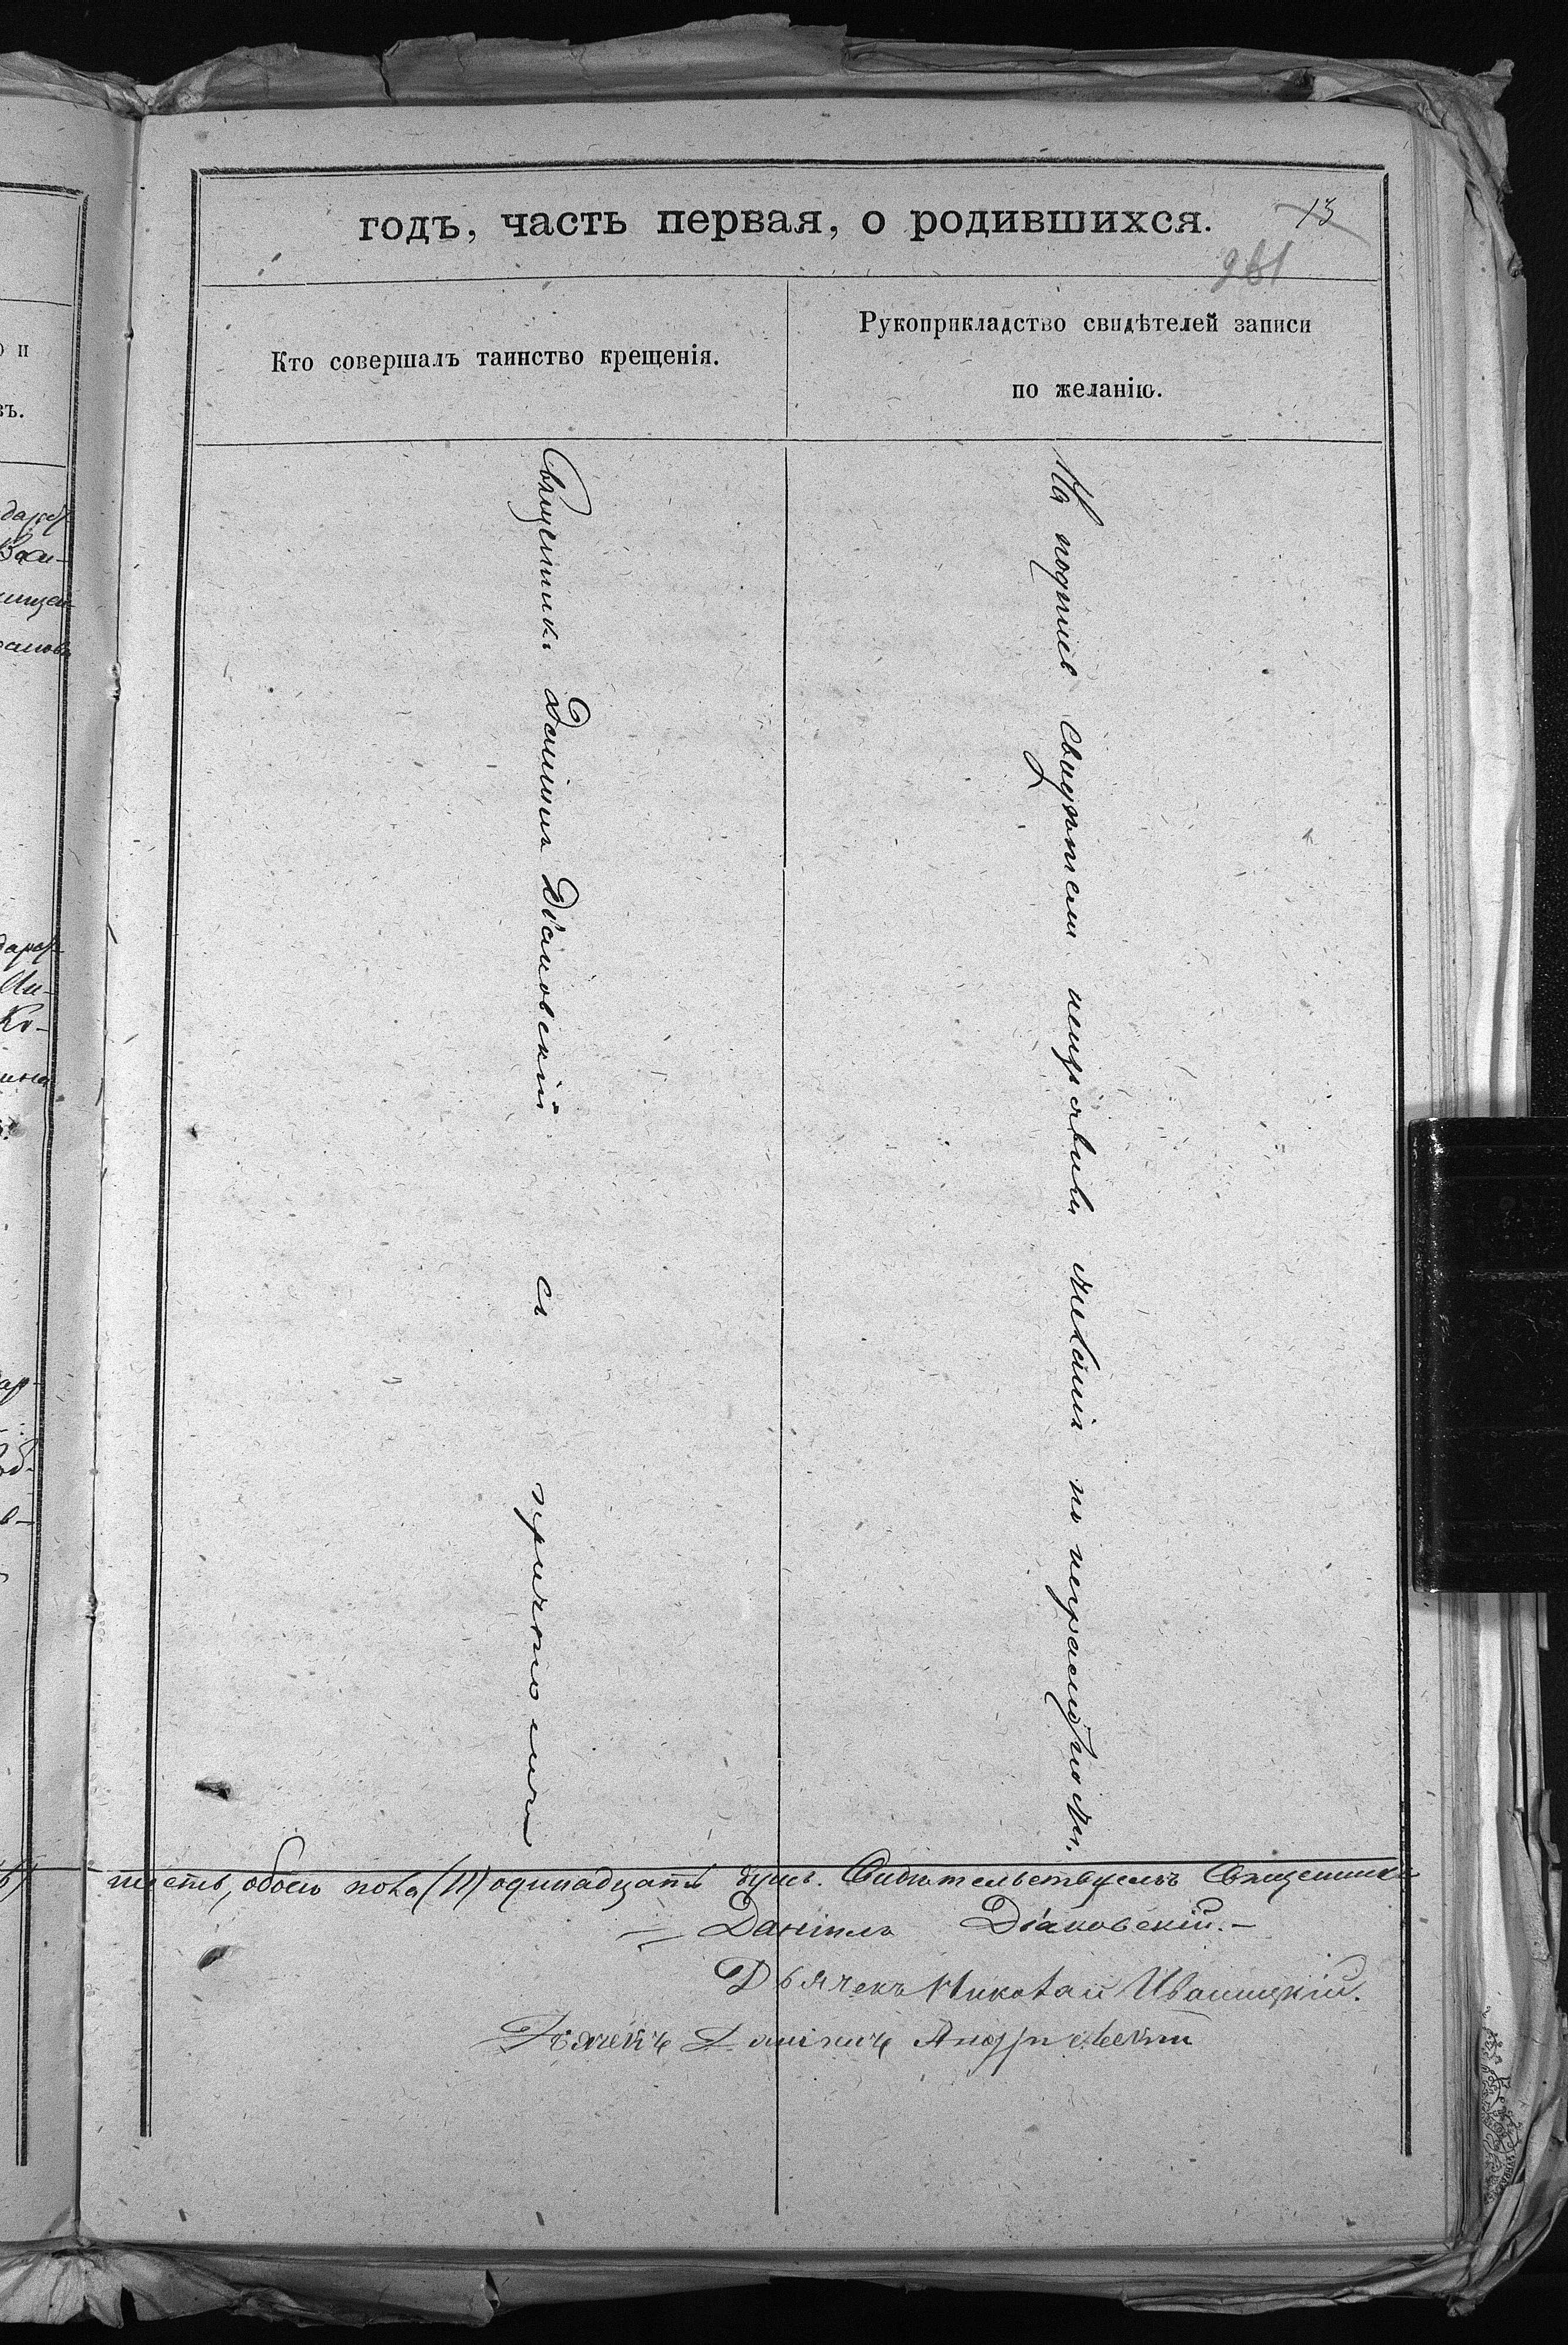 годъ, часть первая, о родившихся.
13
261
Кто совершалъ таинство крещенія.
Рукоприкладство свидѣтелей записи
по желанію.
Священникъ Даніилъ Діаковскій съ причтомъ
На подпись свидѣтели неизъявили желанія по неграмотности.
шесть, обоего пола (11) одинадцать душъ. Свидѣтельствуемъ Священникъ
Даніилъ Діаковскій.-
Дьячекъ Николай Иваницкій.